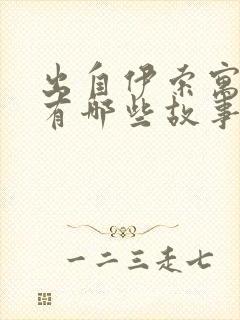 出自伊索寓
有哪些故事
一二三走七